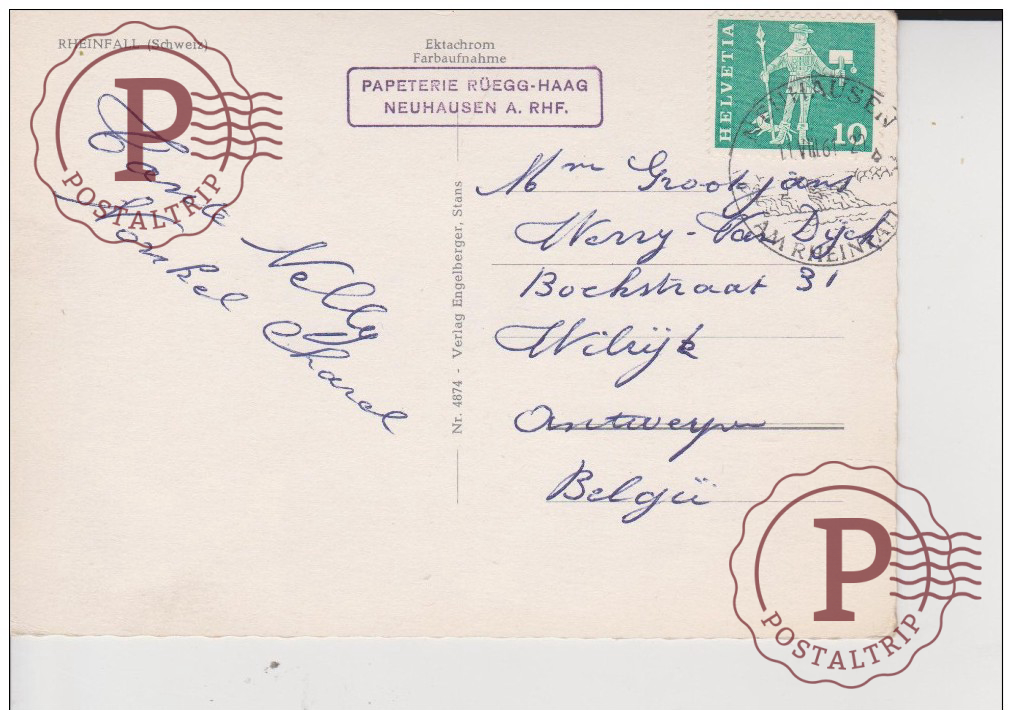 RHEINFALL (Schweiz)
Ektachrom
Farbaufnahme
PAPETERIE RÜEGG-HAAG
NEUHAUSEN A. RHF.
HELVETIA
10
NEUHAUSEN
AM RHEINFALL
P
POSTALTRIP
Nelly
Nonkel Charel
Nr. 4874 - Verlag Engelberger, Stans
Mm Grootjans
Werry-Van Dijck
Bochstraat 31
Wilrijk
Antwerpen
België
P
POSTALTRIP